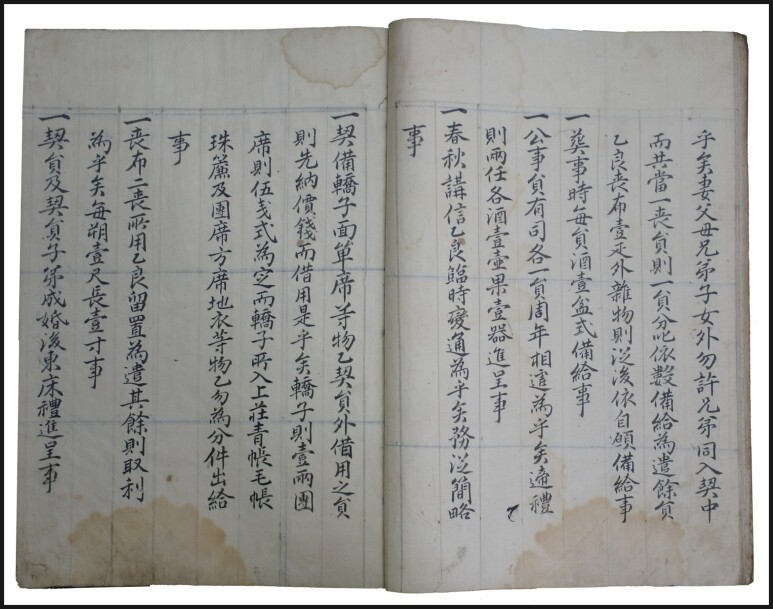 乎矣妻父母兄弟子女外勿許兄弟同入契中
而共當一喪員則一員分叱依數備給為遣餘員
乙良喪布壹疋外雜物則從後依自願備給事
一葬事時每員酒壹盆式備給事
一公事員有司各一員周年相遞為乎矣遞禮
則兩任各酒壹壺果壹器進呈事
一春秋講信乙良臨時變通為乎矣務從簡略
事
一契備轎子面單席等物乙契員外借用之員
則先納價錢而借用是乎矣轎子則壹兩團
席則伍戔式為定而轎子所入上莊青帳毛帳
珠簾及團席方席地衣等物乙勿為分件出給
事
一喪布二喪所用乙良留置為遣其餘則取利
為乎矣每朔壹尺長壹寸事
一契員及契員子弟成婚後東床禮進呈事